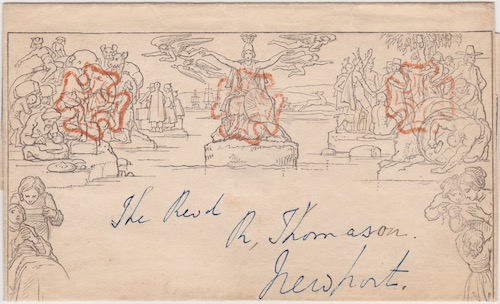 The Revd
R, Thomason.
Newport.